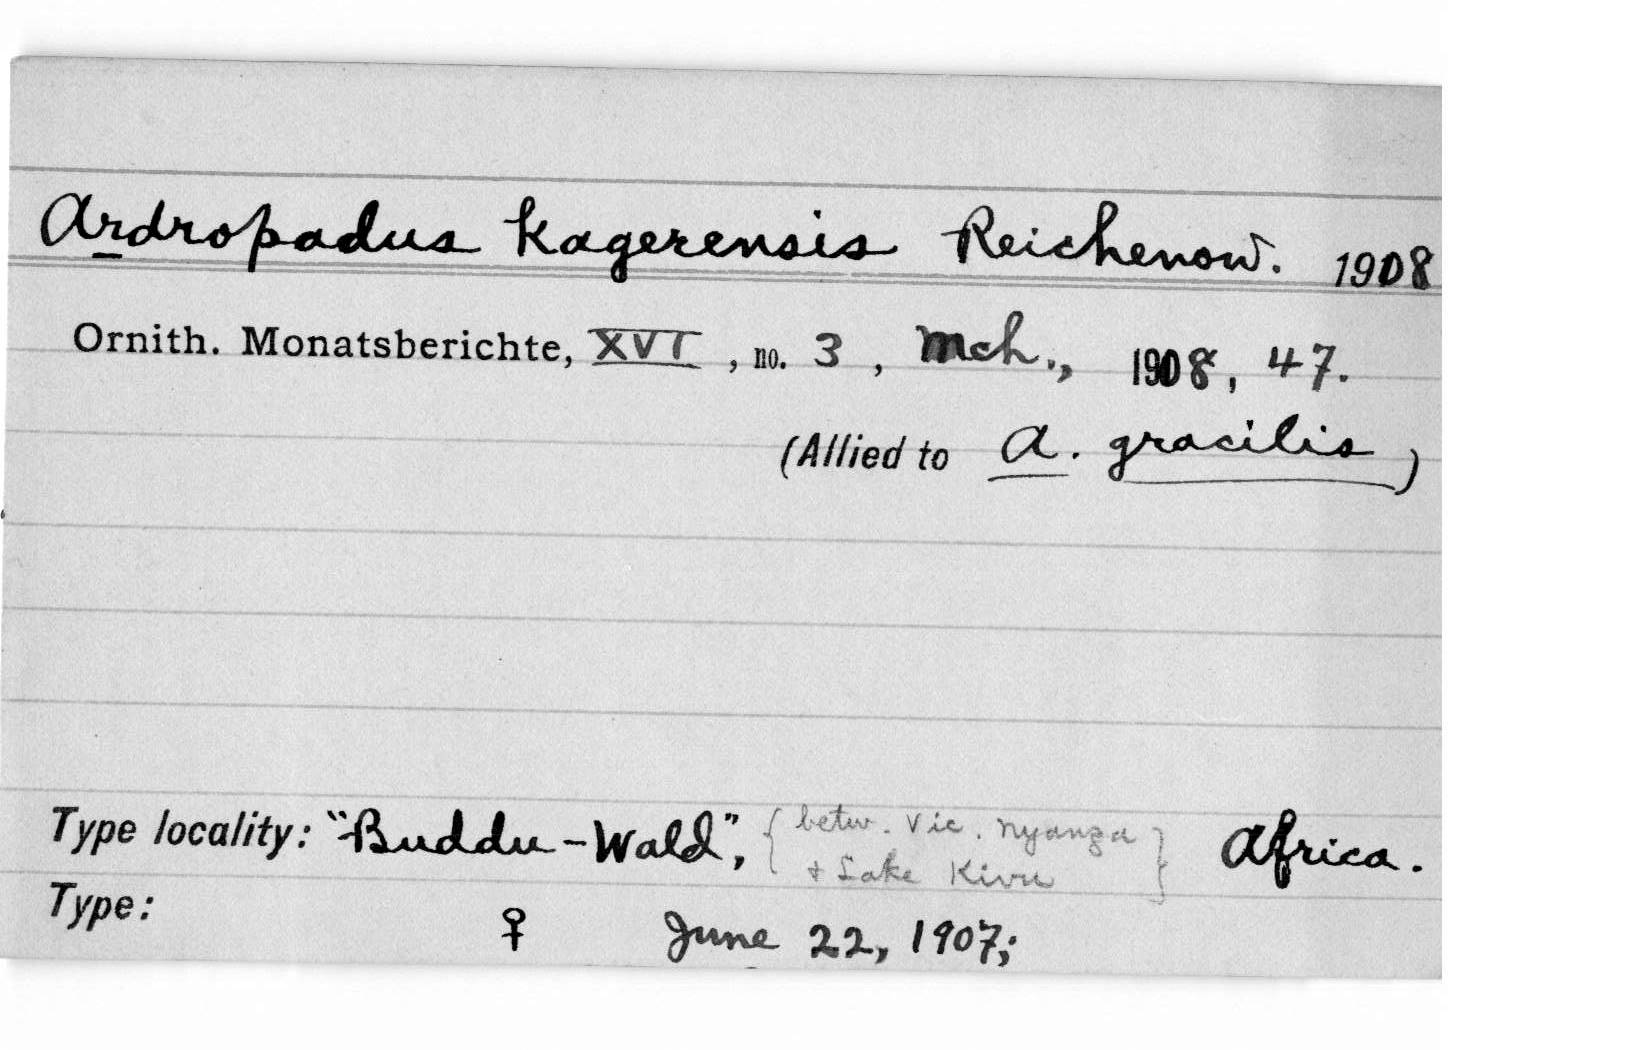 Ardropadus kagerensis Reichenow. 1908
Ornith. Monatsberichte, XVI, no. 3, Mch., 1908, 47.
(Allied to A. gracilis)
Type locality: "Buddu-Wald", {betw. Vic. Nyanza & Lake Kivu} Africa.
Type: ♀ June 22, 1907;